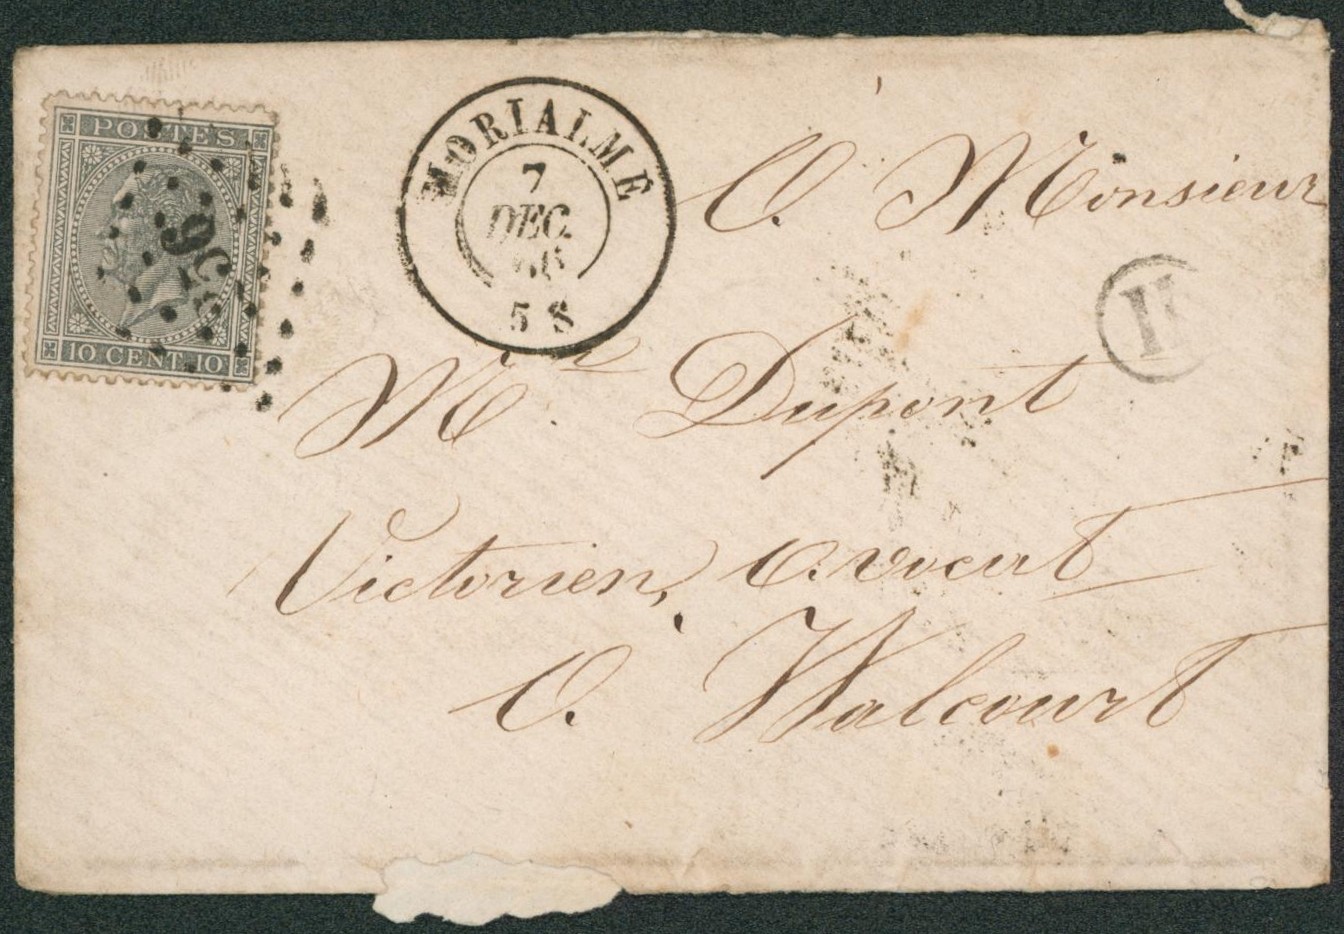 POSTES
10 CENT. 10
MORIALME
7
DEC.
5 S
A Monsieur
Mr Dupont
Victorien, avocat
A Walcourt